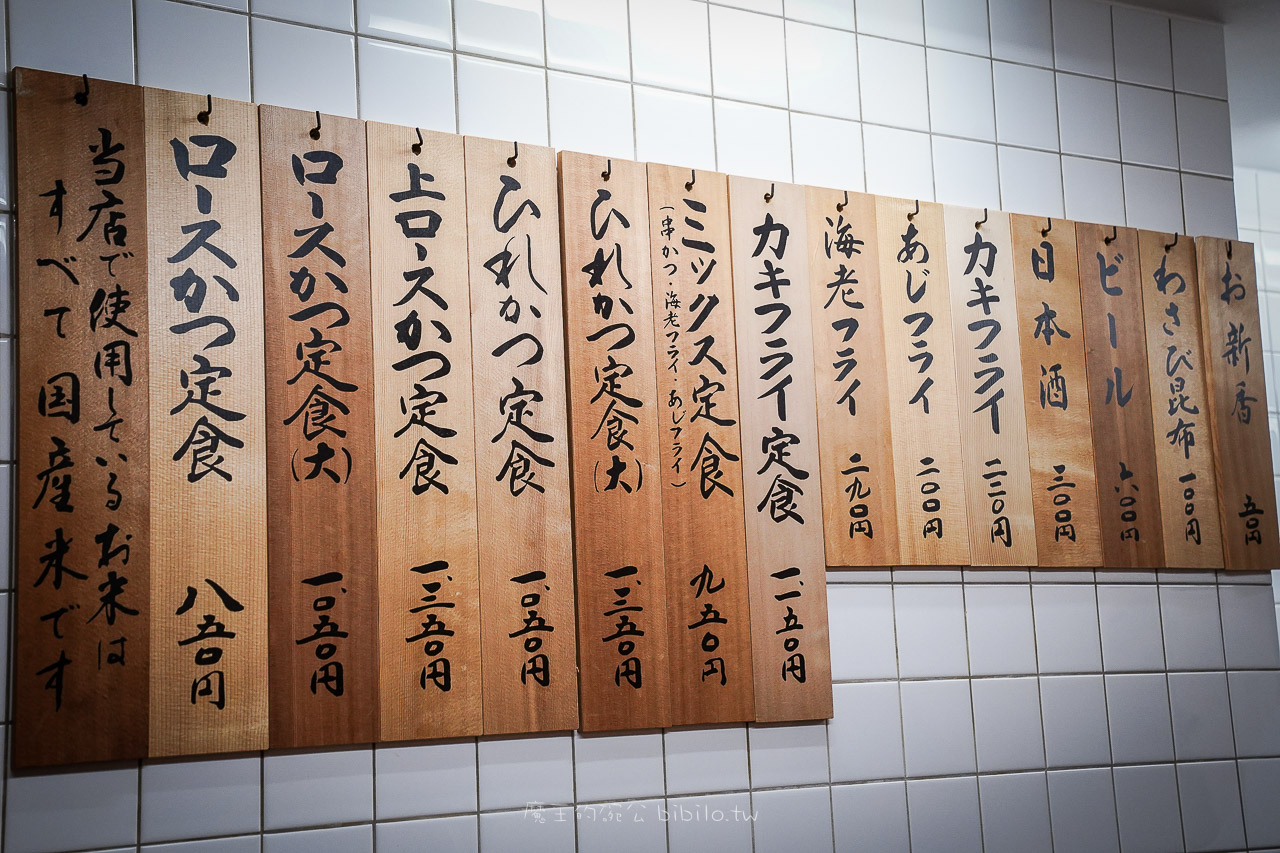 お新香 五〇円
わさび昆布 一〇〇円
ビール 六〇〇円
日本酒 三〇〇円
カキフライ 二二〇円
あじフライ 二〇〇円
海老フライ 二九〇円
カキフライ定食 一、一五〇円
ミックス定食 九五〇円
(串かつ・海老フライ・あじフライ)
ひれかつ定食(大) 一、三五〇円
ひれかつ定食 一、〇五〇円
上ロースかつ定食 一、三五〇円
ロースかつ定食(大) 一、〇五〇円
ロースかつ定食 八五〇円
当店で使用しているお米は
すべて国産米です
魔王的碗公 bibilo.tw